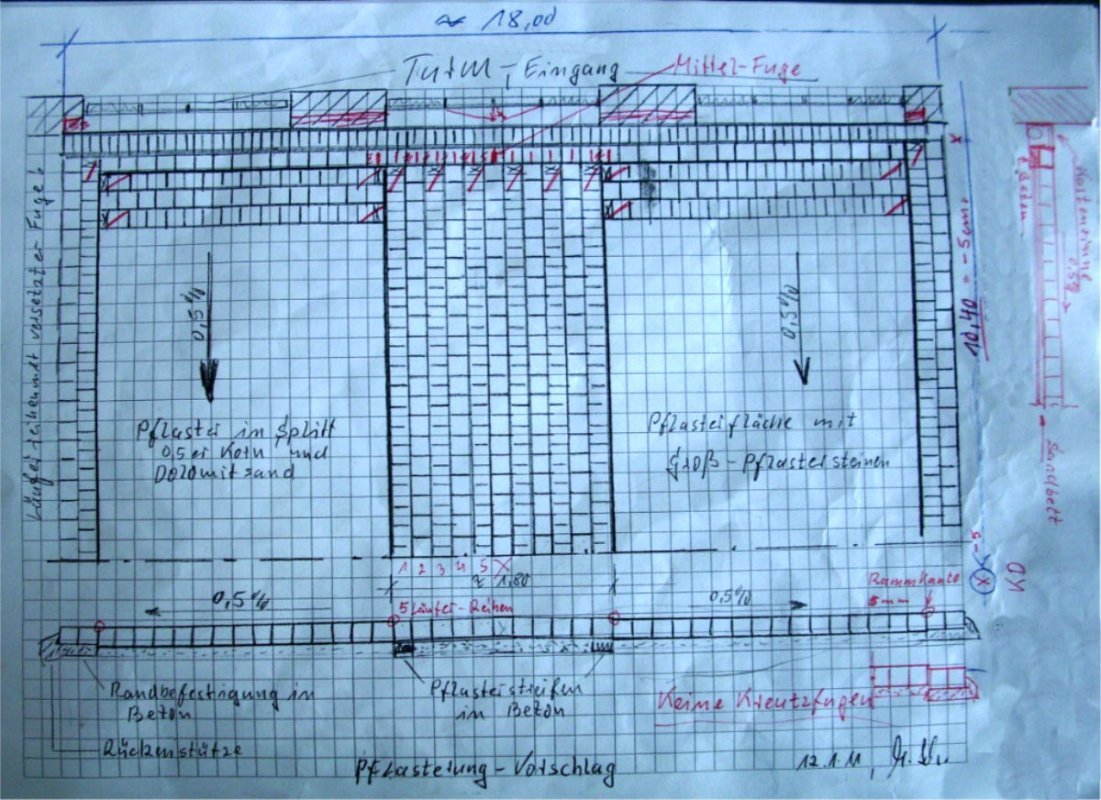 ≈ 18,00
Turm-Eingang
Mittel-Fuge
Läuferreihen mit versetzter Fuge!
0,5%
0,5%
10,40 - -5cm.
0,5%
Pflaster in Splitt
0,5er Korn und
Dolomitsand
Pflasterfläche mit
Groß-Pflastersteinen
1 2 3 4 5 X
≈ 1,80
-5
X
0,5%
5 Läufer-Reihen
0,5%
Rammkante
5mm
Randbefestigung in
Beton
Pflasterstreifen
in Beton
Keine Kreutzfugen
Rückenstütze
Pflasterung-Vorschlag
12.1.11,